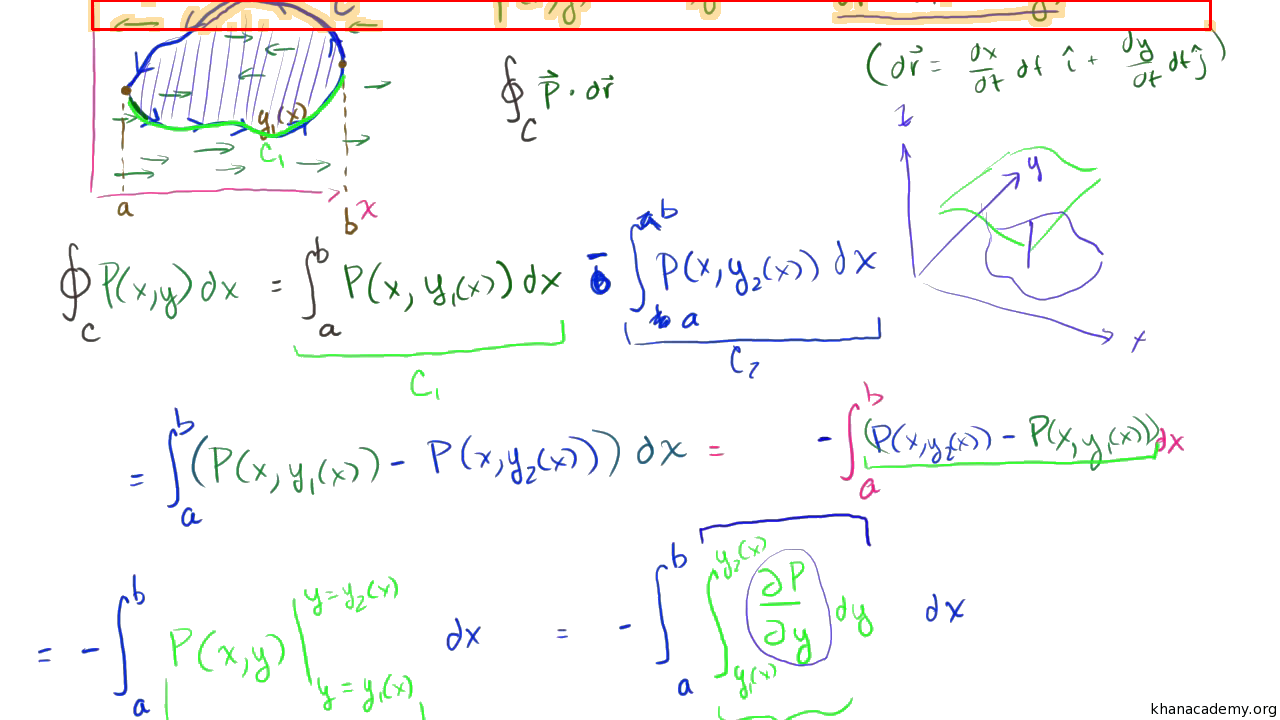 (dr⃗ = dx/dt dt î + dy/dt dt ĵ)
∮_C P⃗ · dr⃗
y₁(x)
C₁
a
b
x
z
y
x
∮_C P(x,y) dx = ∫_a^b P(x, y₁(x)) dx − ∫_a^b P(x, y₂(x)) dx
C₁
C₂
= ∫_a^b (P(x, y₁(x)) − P(x, y₂(x))) dx = − ∫_a^b (P(x, y₂(x)) − P(x, y₁(x))) dx
= − ∫_a^b P(x,y) |_{y = y₁(x)}^{y = y₂(x)} dx = − ∫_a^b ∫_{y₁(x)}^{y₂(x)} ∂P/∂y dy dx
khanacademy.org